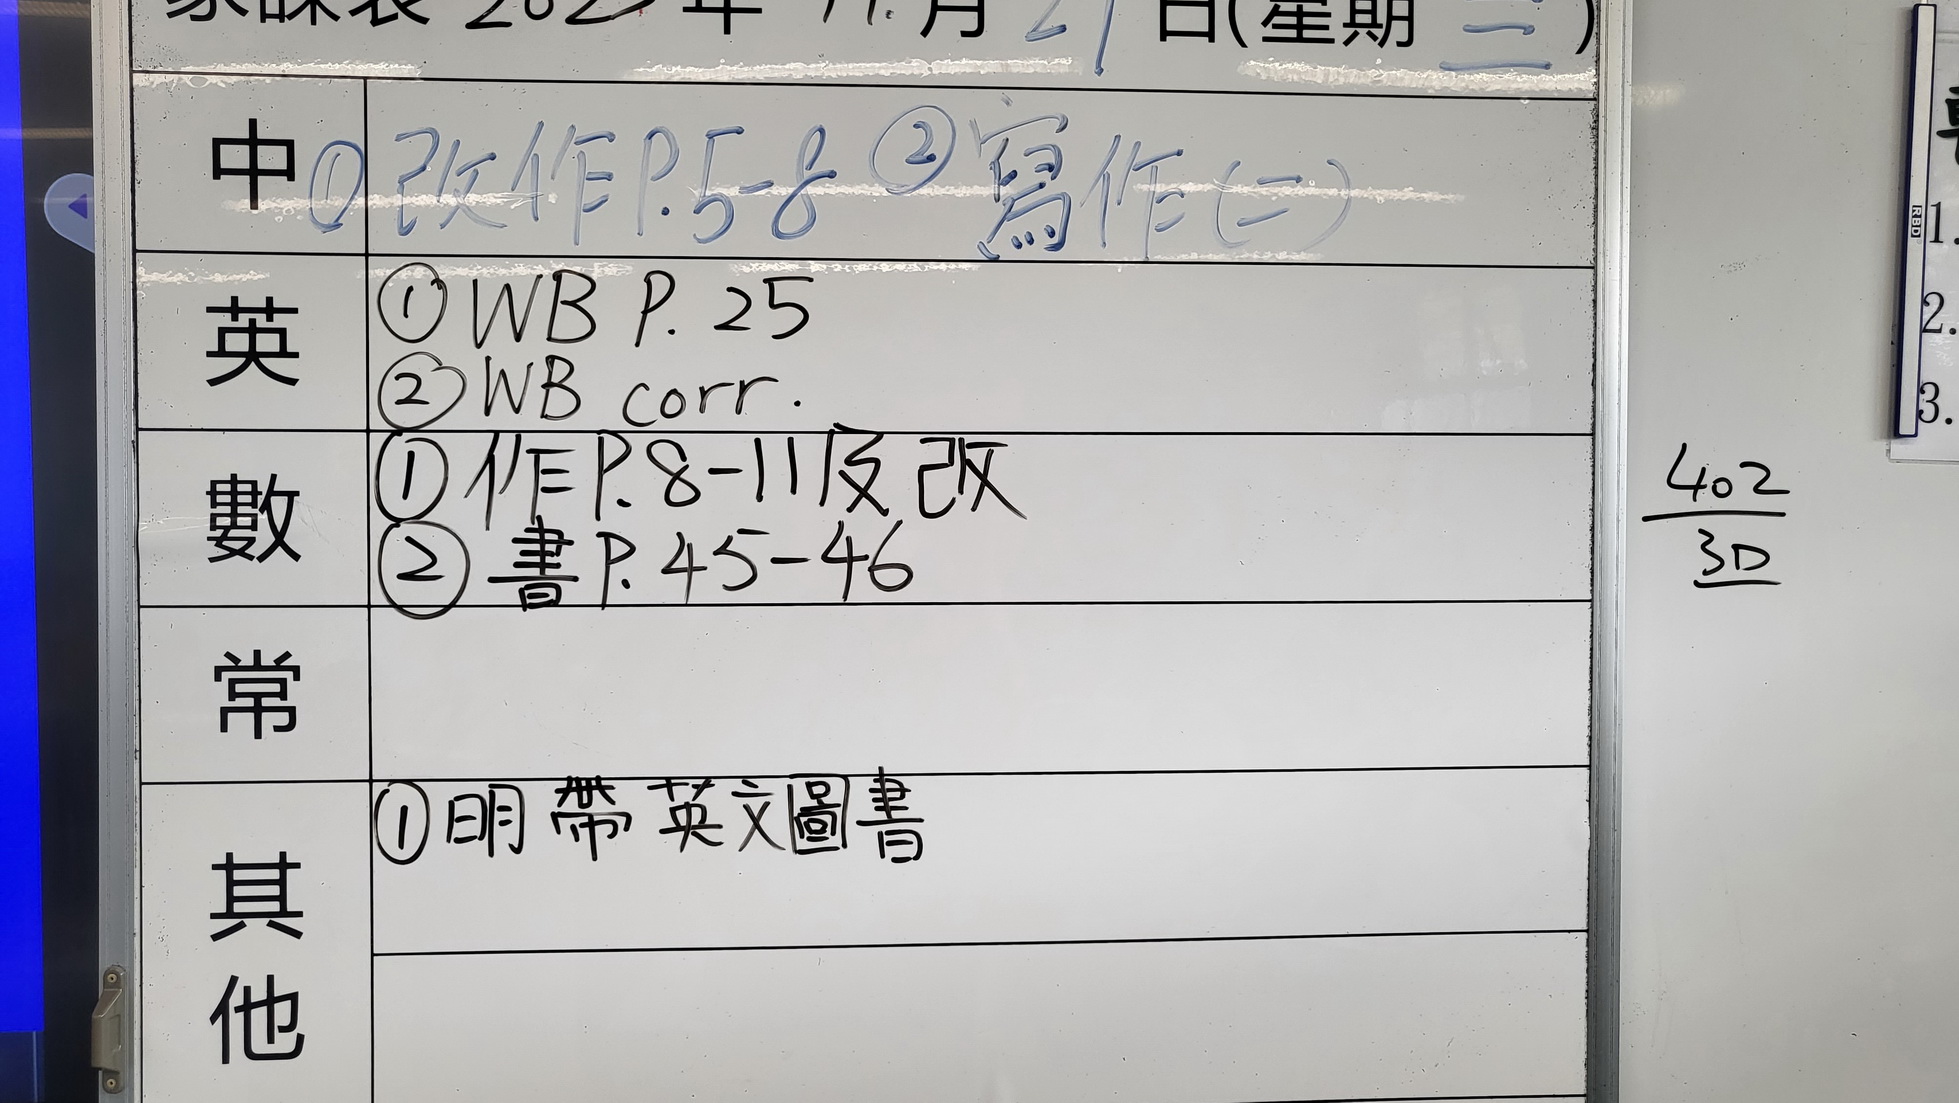 家課表 2025年 11月 29日(星期 三)
中 ① 改作P.5-8 ② 寫作(二)
英
① WB P. 25
② WB corr.
數
① 作P.8-11及改
② 書P.45-46
常
其他
① 明帶英文圖書
402
3D
1.
2.
3.
RBD